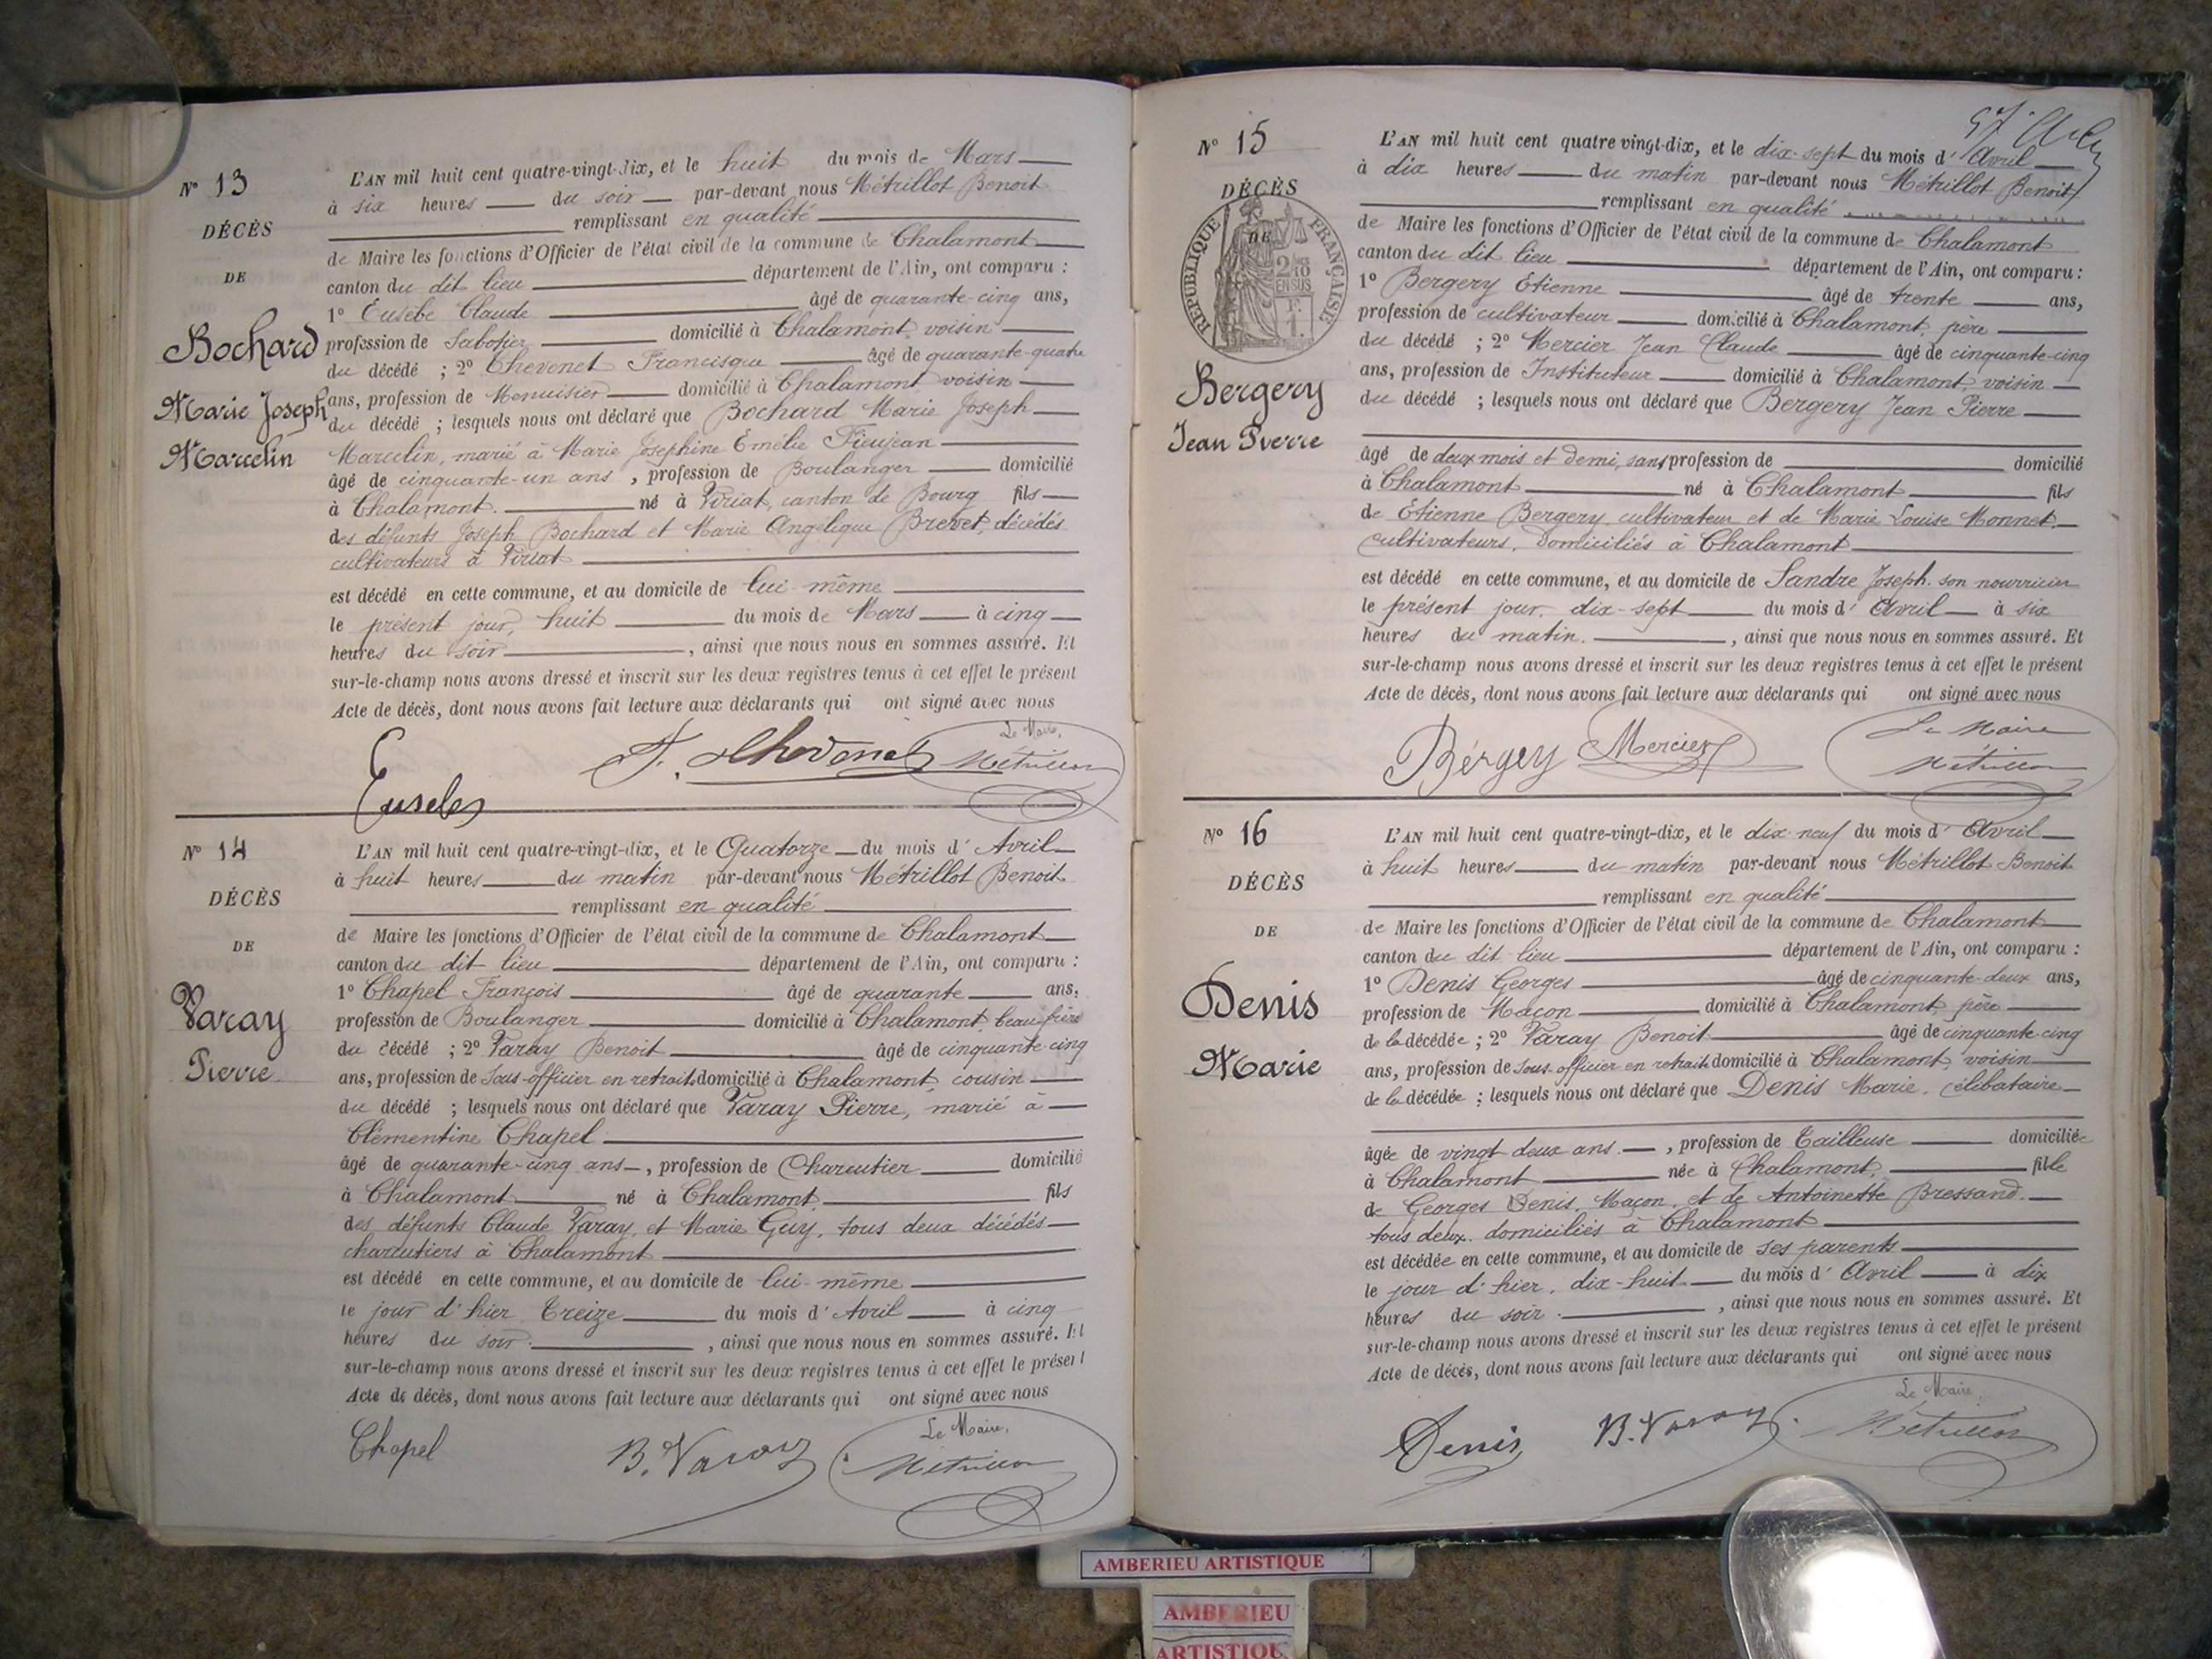 N° 13
DÉCÈS
DE
Bochard
Marie Joseph
Marcelin
L'AN mil huit cent quatre-vingt-dix, et le huit du mois de Mars
à six heures du soir par-devant nous Métrillot Benoit
remplissant en qualité
de Maire les fonctions d'Officier de l'état civil de la commune de Chalamont
canton du dit lieu département de l'Ain, ont comparu :
1° Eusèbe Claude âgé de quarante-cinq ans,
profession de Sabotier domicilié à Chalamont, voisin
du décédé ; 2° Chevenet Francisque âgé de quarante-quatre
ans, profession de Menuisier domicilié à Chalamont voisin
du décédé ; lesquels nous ont déclaré que Bochard Marie Joseph
Marcelin, marié à Marie Josephine Emélie Fieujean
âgé de cinquante-un ans , profession de Boulanger domicilié
à Chalamont. né à Viriat, canton de Bourg fils
des défunts Joseph Bochard et Marie Angelique Brevet, décédés
cultivateurs à Viriat
est décédé en cette commune, et au domicile de lui-même
le présent jour, huit du mois de Mars à cinq
heures du soir , ainsi que nous nous en sommes assuré. Et
sur-le-champ nous avons dressé et inscrit sur les deux registres tenus à cet effet le présent
Acte de décès, dont nous avons fait lecture aux déclarants qui ont signé avec nous
Le Maire,
F. Chevenet Métrillot
Eusebe
N° 14
DÉCÈS
DE
Varay
Pierre
L'AN mil huit cent quatre-vingt-dix, et le Quatorze du mois d' Avril
à huit heures du matin par-devant nous Métrillot Benoit
remplissant en qualité
de Maire les fonctions d'Officier de l'état civil de la commune de Chalamont
canton du dit lieu département de l'Ain, ont comparu :
1° Chapel François âgé de quarante ans,
profession de Boulanger domicilié à Chalamont, beau-frère
du décédé ; 2° Varay Benoit âgé de cinquante-cinq
ans, profession de Sous-officier en retraite domicilié à Chalamont, cousin
du décédé ; lesquels nous ont déclaré que Varay Pierre, marié à
Clémentine Chapel
âgé de quarante-cinq ans , profession de Charcutier domicilié
à Chalamont né à Chalamont fils
des défunts Claude Varay, et Marie Guy, tous deux décédés
charcutiers à Chalamont
est décédé en cette commune, et au domicile de lui-même
le jour d'hier Treize du mois d' Avril à cinq
heures du soir. , ainsi que nous nous en sommes assuré. Et
sur-le-champ nous avons dressé et inscrit sur les deux registres tenus à cet effet le présent
Acte de décès, dont nous avons fait lecture aux déclarants qui ont signé avec nous
Le Maire,
Chapel B. Varay Métrillot
N° 15
DÉCÈS
DE
RÉPUBLIQUE FRANÇAISE
2/10
EN SUS
F.
1.
Bergery
Jean Pierre
L'AN mil huit cent quatre vingt-dix, et le dix-sept du mois d' Avril
à dix heures du matin par-devant nous Métrillot Benoit
remplissant en qualité
de Maire les fonctions d'Officier de l'état civil de la commune de Chalamont
canton du dit lieu département de l'Ain, ont comparu :
1° Bergery Etienne âgé de trente ans,
profession de cultivateur domicilié à Chalamont, père
du décédé ; 2° Mercier Jean Claude âgé de cinquante-cinq
ans, profession de Instituteur domicilié à Chalamont, voisin
du décédé ; lesquels nous ont déclaré que Bergery Jean Pierre
âgé de deux mois et demi, sans profession de domicilié
à Chalamont né à Chalamont fils
de Etienne Bergery, cultivateur et de Marie Louise Monnet
cultivateurs, domiciliés à Chalamont
est décédé en cette commune, et au domicile de Sandre Joseph, son nourricier
le présent jour, dix-sept du mois d' Avril à six
heures du matin. , ainsi que nous nous en sommes assuré. Et
sur-le-champ nous avons dressé et inscrit sur les deux registres tenus à cet effet le présent
Acte de décès, dont nous avons fait lecture aux déclarants qui ont signé avec nous
Le Maire
Bérgey Mercier Métrillot
N° 16
DÉCÈS
DE
Denis
Marie
L'AN mil huit cent quatre-vingt-dix, et le dix-neuf du mois d' Avril
à huit heures du matin par-devant nous Métrillot Benoit
remplissant en qualité
de Maire les fonctions d'Officier de l'état civil de la commune de Chalamont
canton du dit lieu département de l'Ain, ont comparu :
1° Denis Georges âgé de cinquante-deux ans,
profession de Maçon domicilié à Chalamont, père
de la décédée ; 2° Varay Benoit âgé de cinquante-cinq
ans, profession de Sous-officier en retraite domicilié à Chalamont, voisin
de la décédée ; lesquels nous ont déclaré que Denis Marie, Célibataire
âgée de vingt deux ans , profession de Tailleuse domiciliée
à Chalamont née à Chalamont, fille
de Georges Denis, Maçon, et de Antoinette Bressand.
tous deux domiciliés à Chalamont
est décédée en cette commune, et au domicile de ses parents
le jour d'hier, dix-huit du mois d' Avril à dix
heures du soir. , ainsi que nous nous en sommes assuré. Et
sur-le-champ nous avons dressé et inscrit sur les deux registres tenus à cet effet le présent
Acte de décès, dont nous avons fait lecture aux déclarants qui ont signé avec nous
Le Maire,
Denis B. Varay Métrillot
AMBERIEU ARTISTIQUE
AMBERIEU
ARTISTIQUE